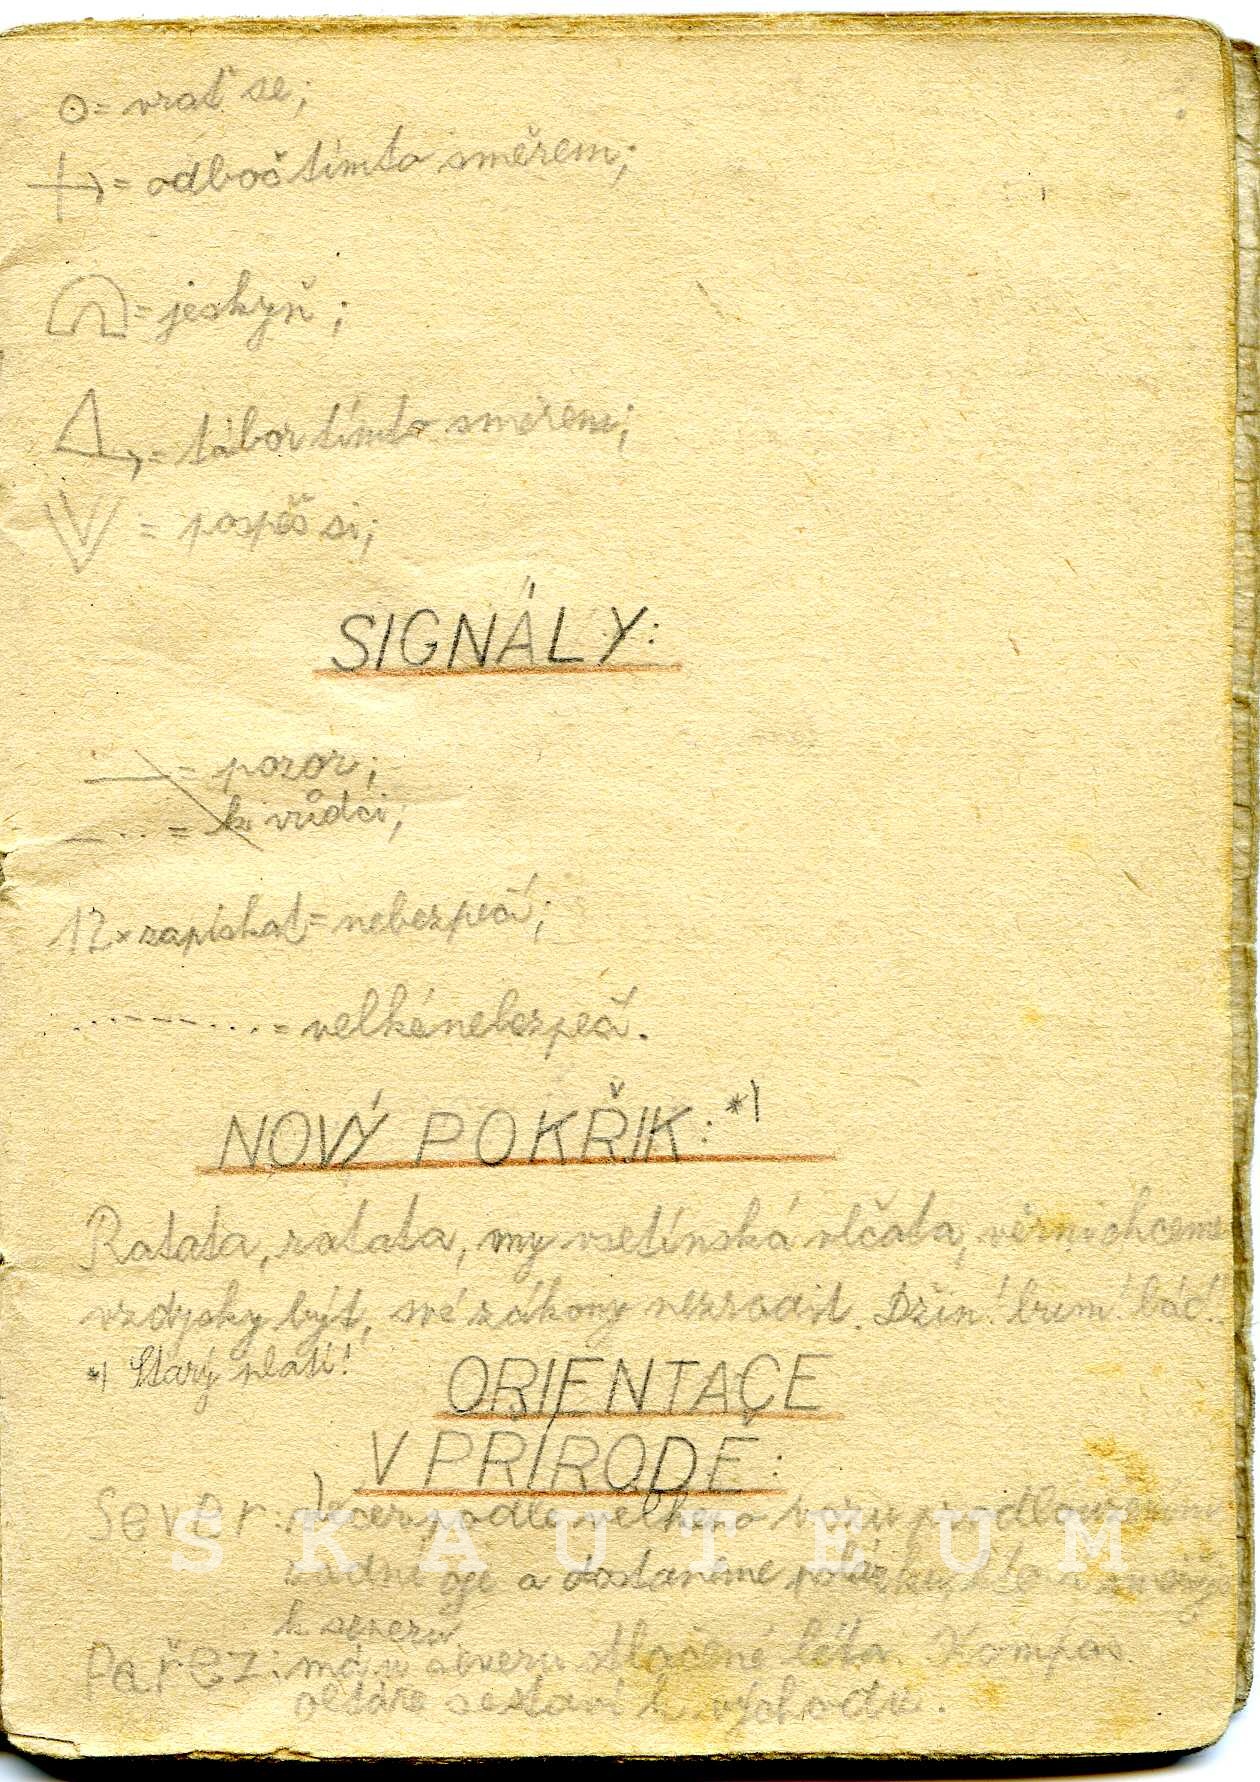 ⊙ = vrať se;
= odboč tímto směrem;
= jeskyň;
= tábor tímto směrem;
= pospěš si;
SIGNÁLY:
— = pozor;
— · · = k vůdci;
12 × zapískat = nebezpečí;
· · · – – – · · · = velké nebezpečí.
NOVÝ POKŘIK: *)
Ratata, ratata, my vsetínská vlčata, věrni chceme
vždycky být, své zákony nezradit. Džin! bum! bác!
*) Starý platí!
ORIENTACE
V PŘÍRODĚ:
Sever: večer podle velkého vozu prodloužením
zadní oje a dostaneme
k severu.
Pařez: má u severu stlačené léta. Kompas.
oltáře se staví k východu.